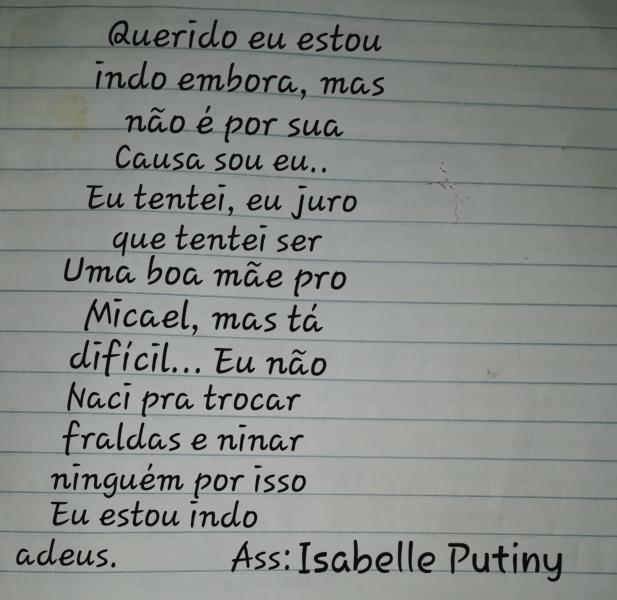 Querido eu estou
indo embora, mas
não é por sua
Causa sou eu..
Eu tentei, eu juro
que tentei ser
Uma boa mãe pro
Micael, mas tá
difícil... Eu não
Naci pra trocar
fraldas e ninar
ninguém por isso
Eu estou indo
adeus. Ass: Isabelle Putiny